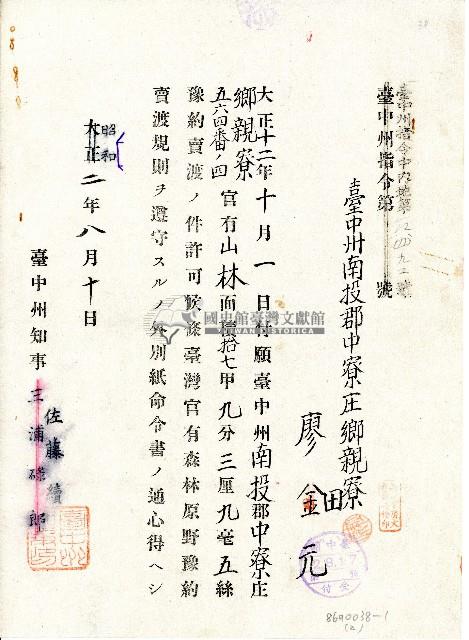 臺中州指令中內地第 號
臺中州指令第 號
臺中州南投郡中寮庄鄉親寮
廖 金 元
田
大正十二年十月一日付願臺中州南投郡中寮庄
鄉親寮
五六四番ノ四
官有山林面積拾七甲九分三厘九毫五絲
豫約賣渡ノ件許可候條臺灣官有森林原野豫約
賣渡規則ヲ遵守スルノ外別紙命令書ノ通心得ヘシ
昭和
大正二年八月十日
臺中州知事 三浦碌郎
佐藤續
國史館臺灣文獻館
TAIWAN HISTORICA
8690038-1
(2)